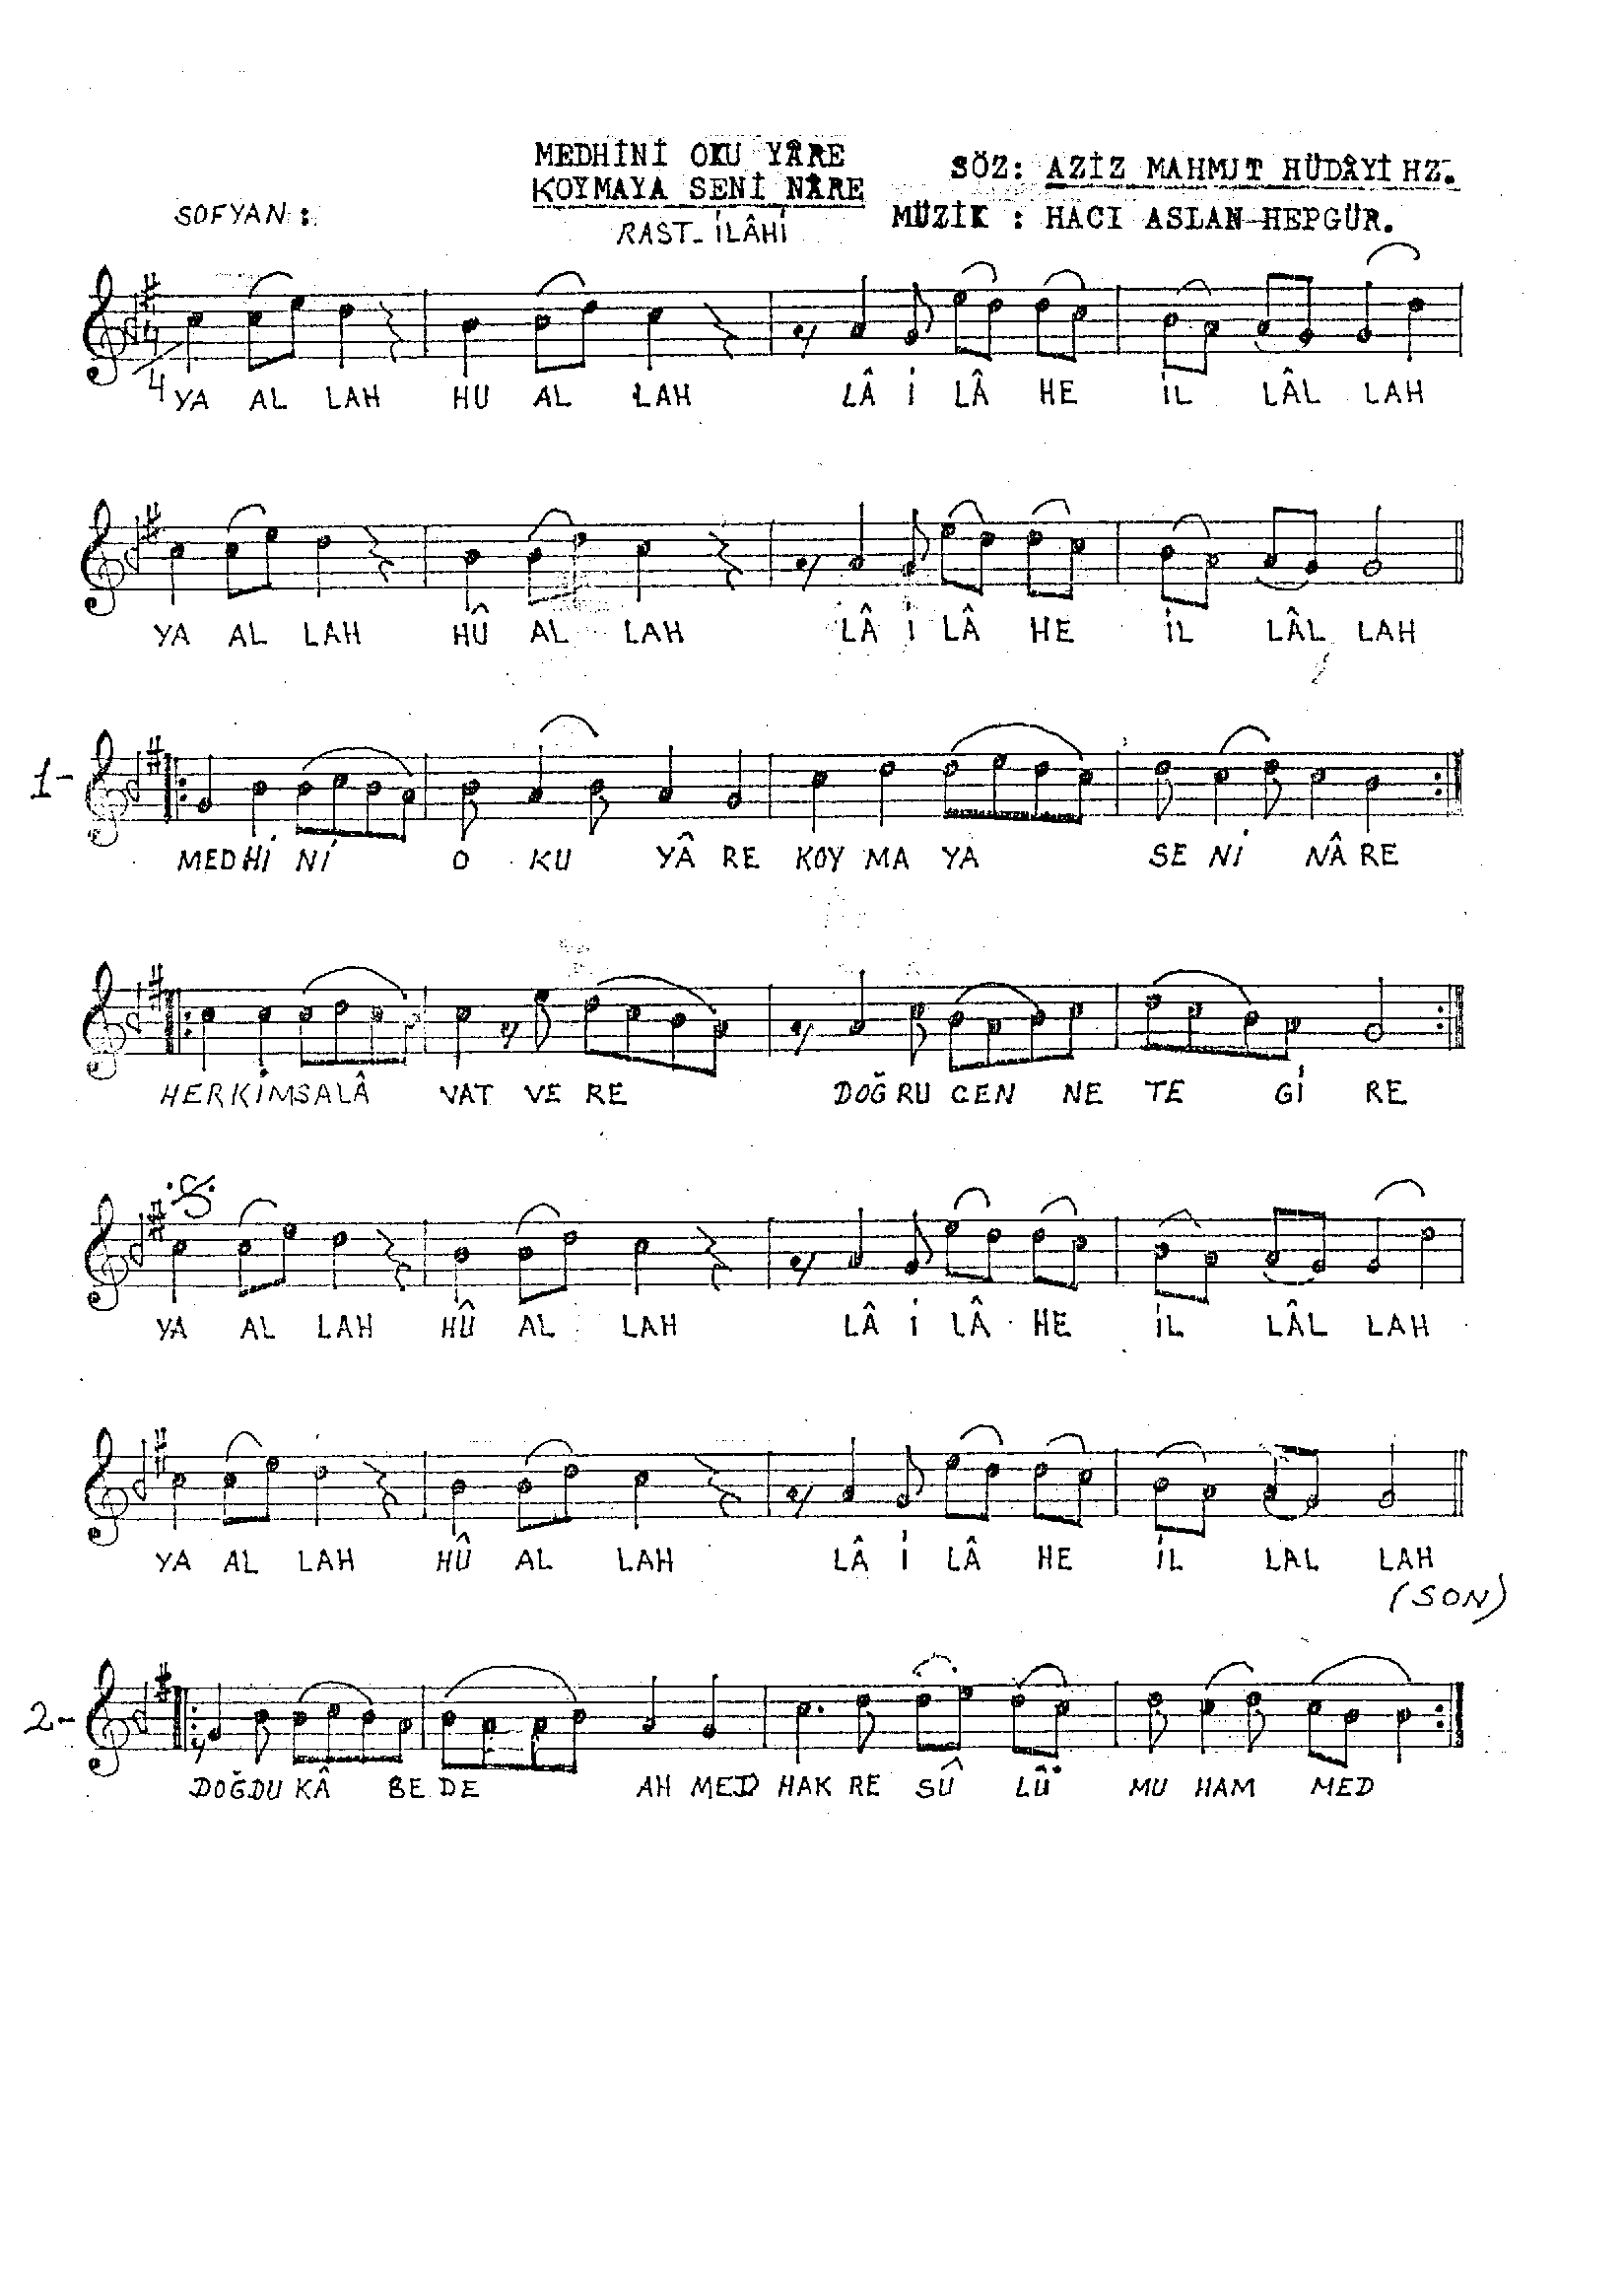 MEDHİNİ OKU YÂRE
KOYMAYA SENİ NÂRE
SÖZ: AZİZ MAHMUT HÜDÂYİ HZ.
SOFYAN :
RAST-İLÂHİ
MÜZİK : HACI ASLAN HEPGÜR.
4
4
YA AL LAH HU AL LAH LÂ İ LÂ HE İL LÂL LAH
YA AL LAH HÛ AL LAH LÂ İ LÂ HE İL LÂL LAH
1-
MEDHİ Nİ O KU YÂ RE KOY MA YA SE Nİ NÂ RE
HERKİMSALÂ VAT VE RE DOĞ RU CEN NE TE Gİ RE
YA AL LAH HÛ AL LAH LÂ İ LÂ HE İL LÂL LAH
YA AL LAH HÛ AL LAH LÂ İ LÂ HE İL LAL LAH
(SON)
2-
DOĞDU KÂ BE DE AH MED HAK RE SÛ LÜ MU HAM MED